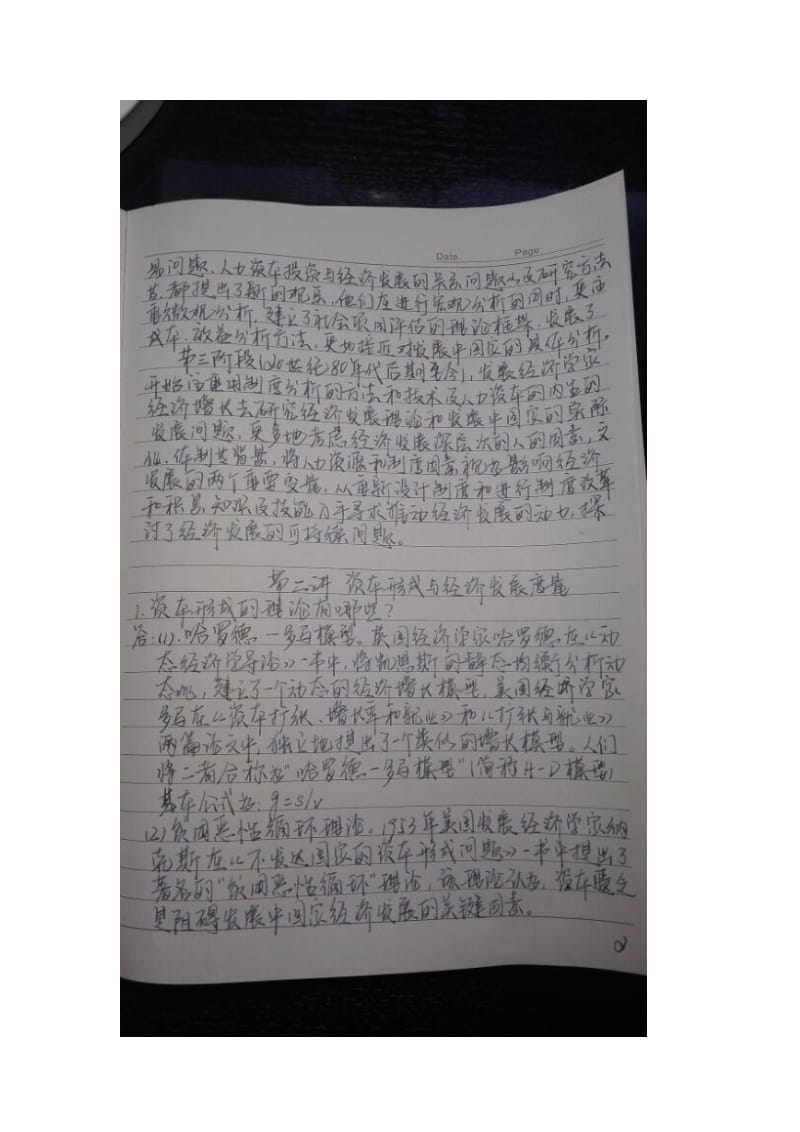 Date Page
易问题、人力资本投资与经济发展的关系问题以及研究方法
等都提出了新的观点,他们在进行宏观分析的同时,更注
重微观分析,建立了社会项目评估的理论框架,发展了
成本、效益分析方法,更加接近对发展中国家的具体分析。
第三阶段(20世纪80年代后期至今),发展经济学家
开始注重用制度分析的方法和技术及人力资本的内生的
经济增长去研究经济发展理论和发展中国家的实际
发展问题,更多地考虑经济发展深层次的人的因素,文
化、体制等背景,将人力资源和制度因素视为影响经济
发展的两个重要变量,从重新设计制度和进行制度改革
和积累知识及技能入手寻求推动经济发展的动力,探
讨了经济发展的可持续问题。
第二讲 资本形成与经济发展度量
1.资本形成的理论有哪些?
答:(1).哈罗德—多马模型。英国经济学家哈罗德在《动
态经济学导论》一书中,将凯恩斯的静态均衡分析动
态化,建立了一个动态的经济增长模型,美国经济学家
多马在《资本扩张、增长率和就业》和《扩张与就业》
两篇论文中,独立地提出了一个类似的增长模型。人们
将二者合称为“哈罗德—多马模型”(简称H-D模型)
基本公式为:g=s/v
(2)贫困恶性循环理论。1953年美国发展经济学家纳
克斯在《不发达国家的资本形成问题》一书中提出了
著名的“贫困恶性循环”理论,该理论认为,资本匮乏
是阻碍发展中国家经济发展的关键因素。
2